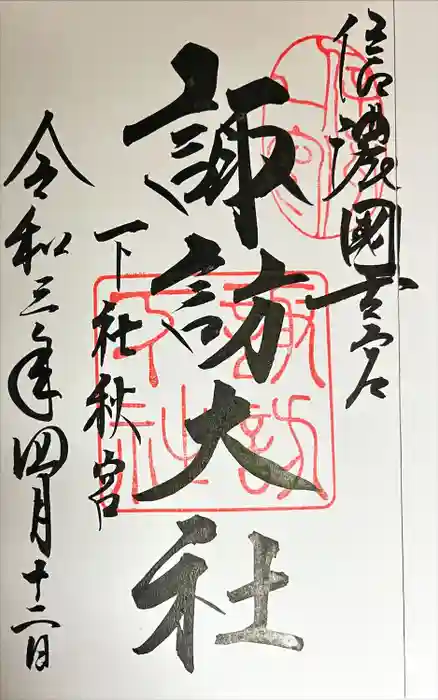 信濃國一之宮
諏訪大社
下社秋宮
令和三年四月十二日